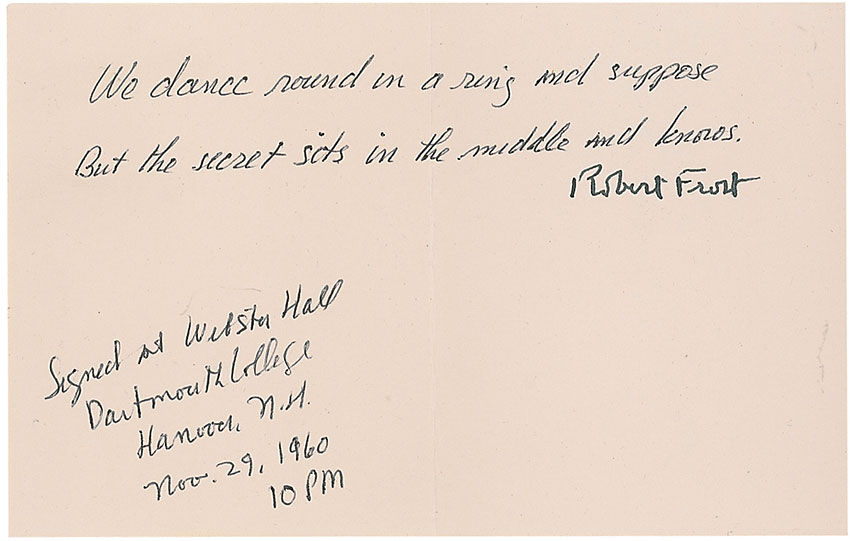 We dance round in a ring and suppose
But the secret sits in the middle and knows.
Robert Frost
Signed at Webster Hall
Dartmouth College
Hanover, N.H.
Nov. 29, 1960
10 PM